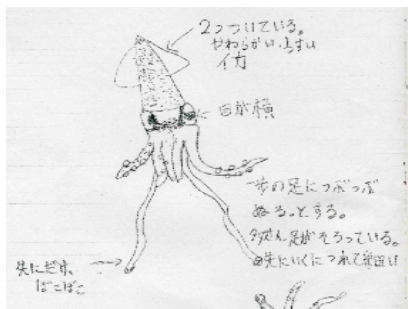 2つついている。
やわらかい、うすい
イカ
目が横
一歩の足につぶつぶ
ぬるっとする。
足がそろっている。
先にいくにつれて
先にだけ、
ぼこぼこ